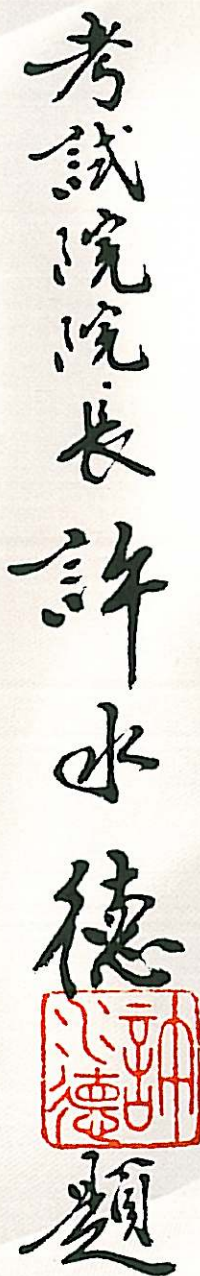 考試院院長許水德題
許水德